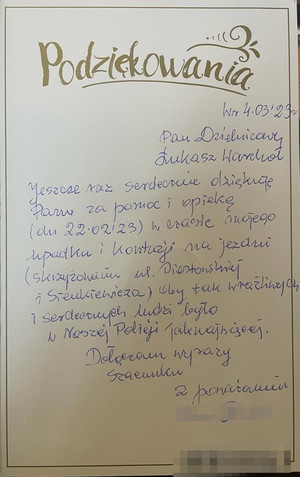 Podziękowania
Wr 4.03'23r
Pan Dzielnicowy
Łukasz Warchoł
Jeszcze raz serdecznie dziękuję
Panu za pomoc i opiekę
(dn 22.02/23) w czasie mojego
upadku i kontuzji na jezdni
(skrzyżowanie ul. Piastowskiej
i Sienkiewicza) oby tak wrażliwych
i serdecznych ludzi było
w Naszej Policji jaknajwięcej.
Dołączam wyrazy
Szacunku
Z poważaniem